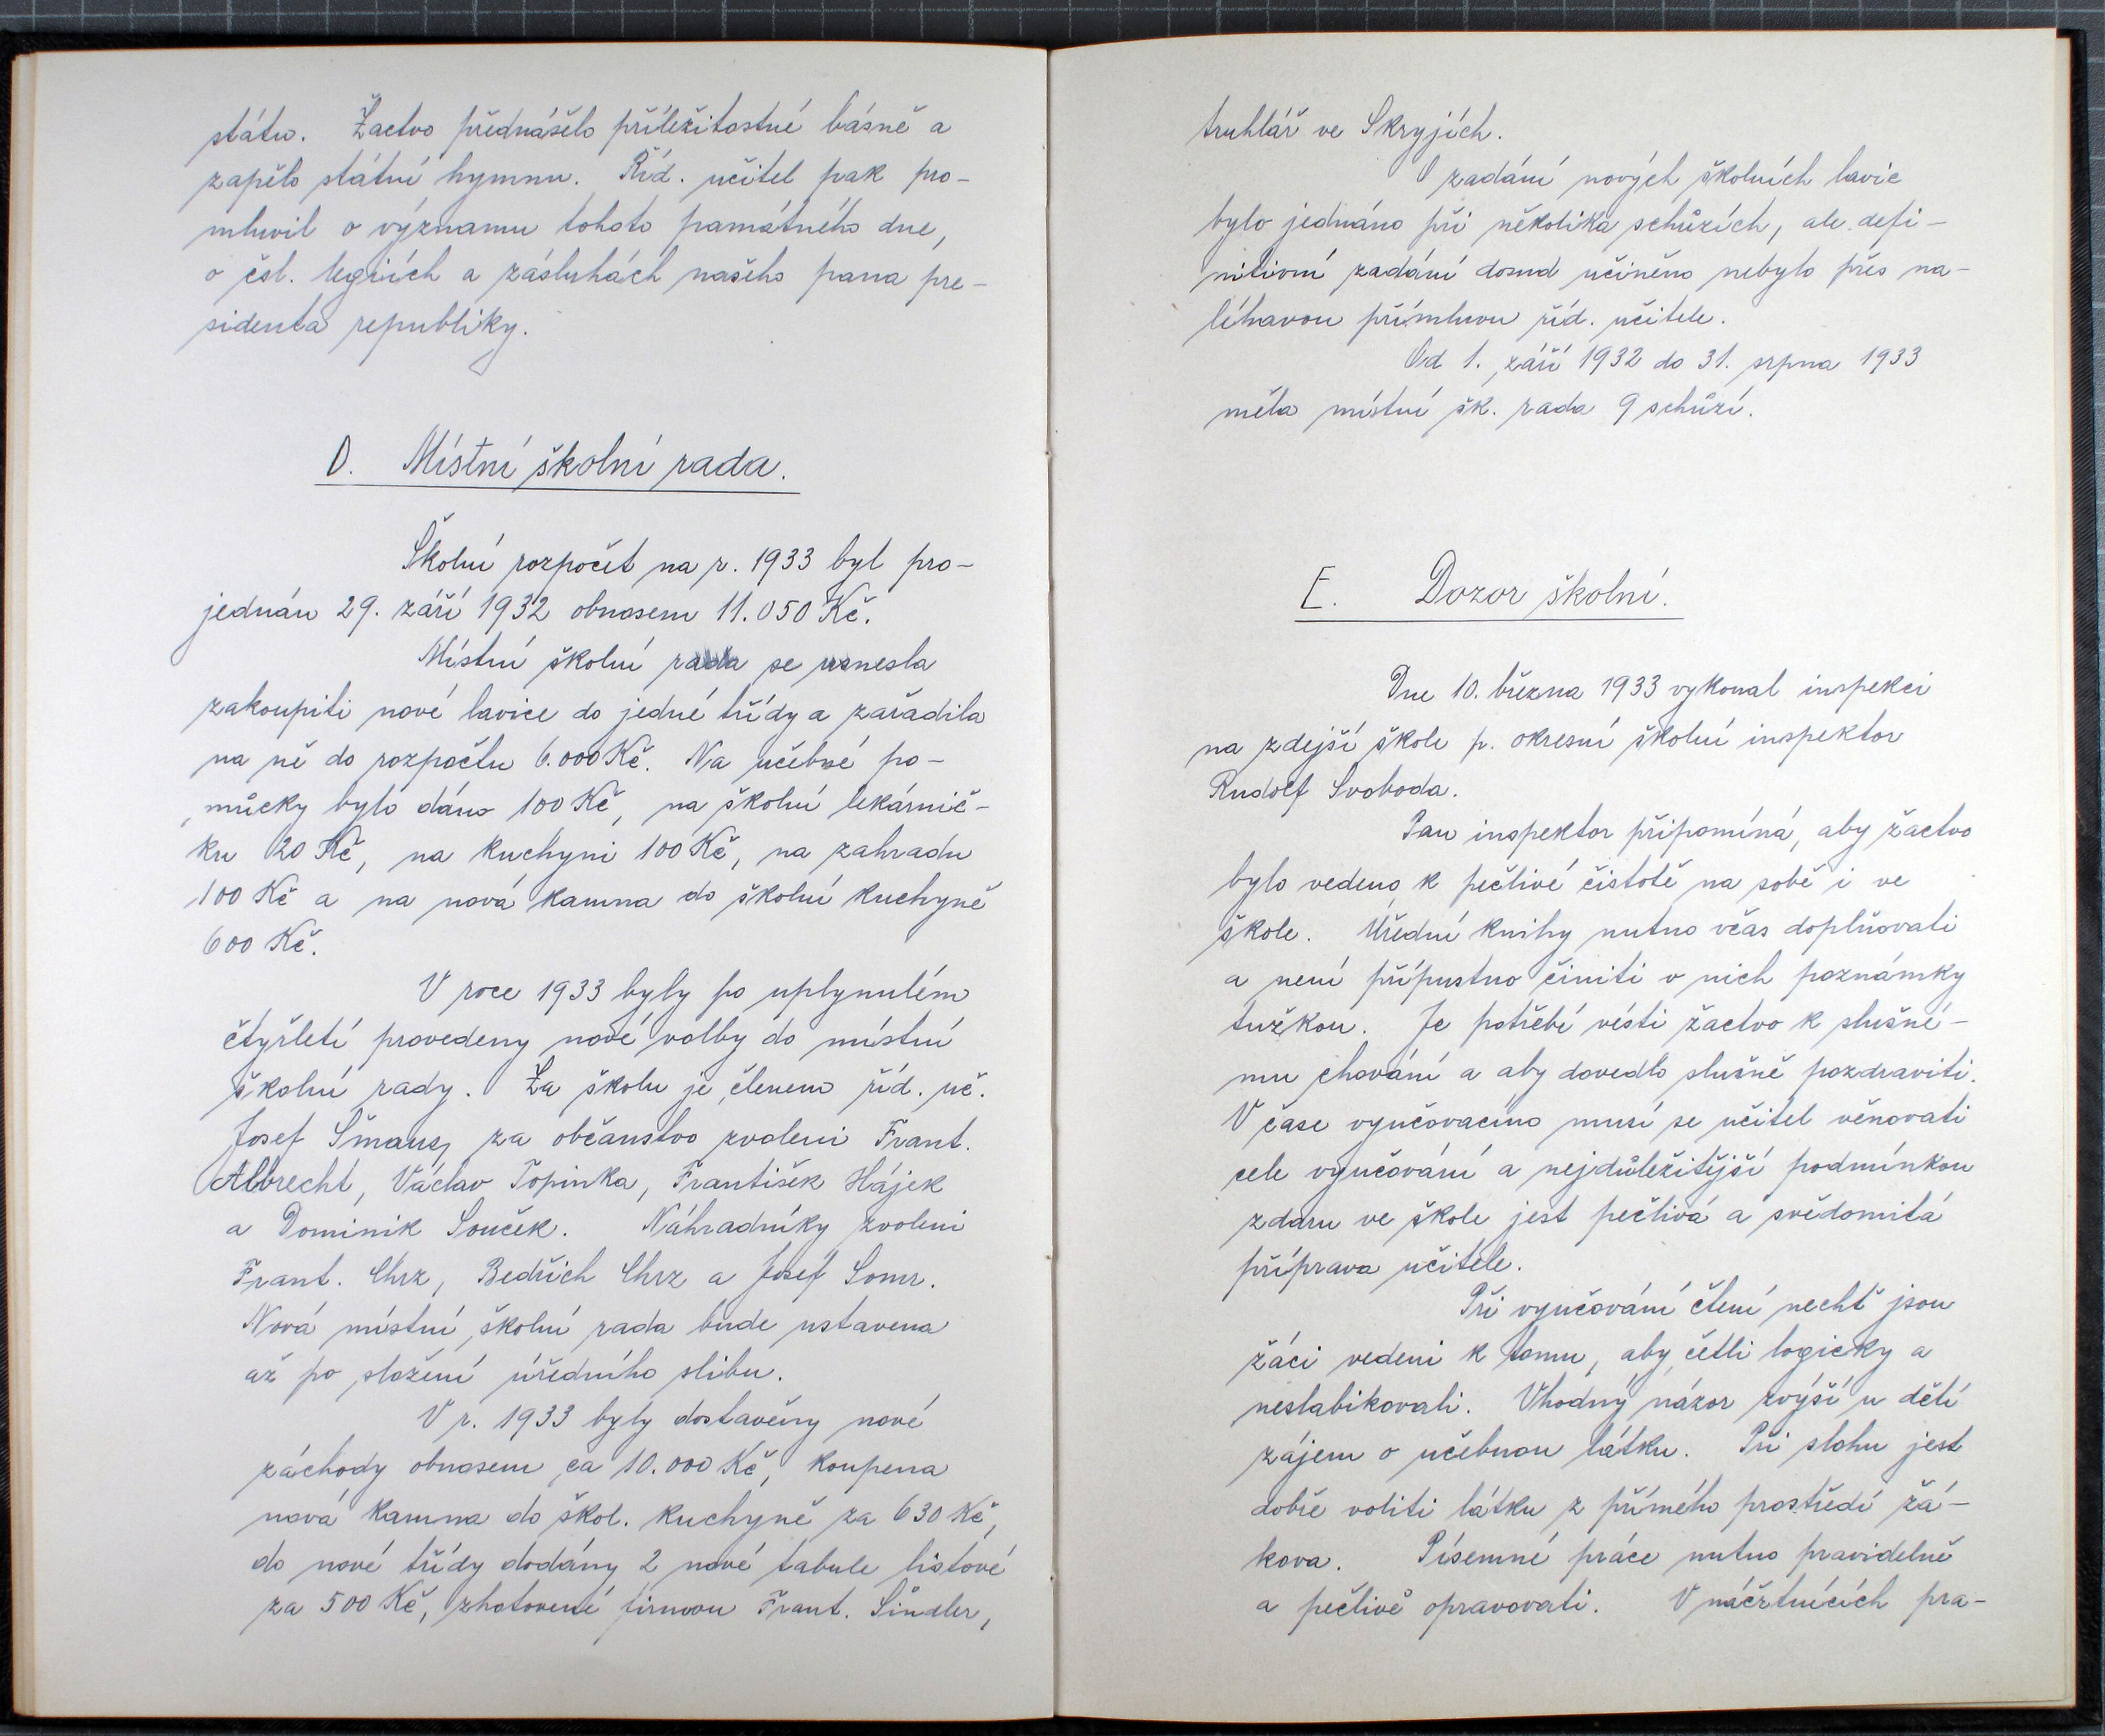 státu. Žactvo přednášelo příležitostné básně a
zapělo státní hymnu. Říd. učitel pak pro-
mluvil o významu tohoto památného dne,
o čsl. legiích a zásluhách našeho pana pre-
sidenta republiky.
D. Místní školní rada.
Školní rozpočet na r. 1933 byl pro-
jednán 29. září 1932 obnosem 11.050 Kč.
Místní školní rada se usnesla
zakoupiti nové lavice do jedné třídy a zařadila
na ně do rozpočtu 6.000 Kč. Na učebné po-
můcky bylo dáno 100 Kč, na školní lékárnič-
ku 20 Kč, na kuchyni 100 Kč, na zahradu
100 Kč a na nová kamna do školní kuchyně
600 Kč.
V roce 1933 byly po uplynulém
čtyřletí provedeny nové volby do místní
školní rady. Za školu je členem říd. uč.
Josef Šmaus, za občanstvo zvoleni Frant.
Albrecht, Václav Topinka, František Hájek
a Dominik Souček. Náhradníky zvoleni
Frant. Chrz, Bedřich Chrz a Josef Somr.
Nová místní školní rada bude ustavena
až po složení úředního slibu.
V r. 1933 byly dostavěny nové
záchody obnosem ca 10.000 Kč, koupena
nová kamna do škol. kuchyně za 630 Kč,
do nové třídy dodány 2 nové tabule listové
za 500 Kč, zhotovené firmou Frant. Šindler,
truhlář ve Skryjích.
O zadání nových školních lavic
bylo jednáno při několika schůzích, ale defi-
nitivní zadání dosud učiněno nebylo přes na-
léhavou přímluvu říd. učitele.
Od 1. září 1932 do 31. srpna 1933
měla místní šk. rada 9 schůzí.
E. Dozor školní.
Dne 10. března 1933 vykonal inspekci
na zdejší škole p. okresní školní inspektor
Rudolf Svoboda.
Pan inspektor připomíná, aby žactvo
bylo vedeno k pečlivé čistotě na sobě i ve
škole. Úřední knihy nutno včas doplňovati
a není přípustno činiti v nich poznámky
tužkou. Je potřebí vésti žactvo k slušné-
mu chování a aby dovedlo slušně pozdraviti.
V čase vyučovacím musí se učitel věnovati
cele vyučování a nejdůležitější podmínkou
zdaru ve škole jest pečlivá a svědomitá
příprava učitele.
Při vyučování čtení nechť jsou
žáci vedeni k tomu, aby četli logicky a
neslabikovali. Vhodný názor zvýší u dětí
zájem o učebnou látku. Při slohu jest
dobře voliti látku z přímého prostředí žá-
kova. Písemné práce nutno pravidelně
a pečlivě opravovati. V náčrtnících pra-